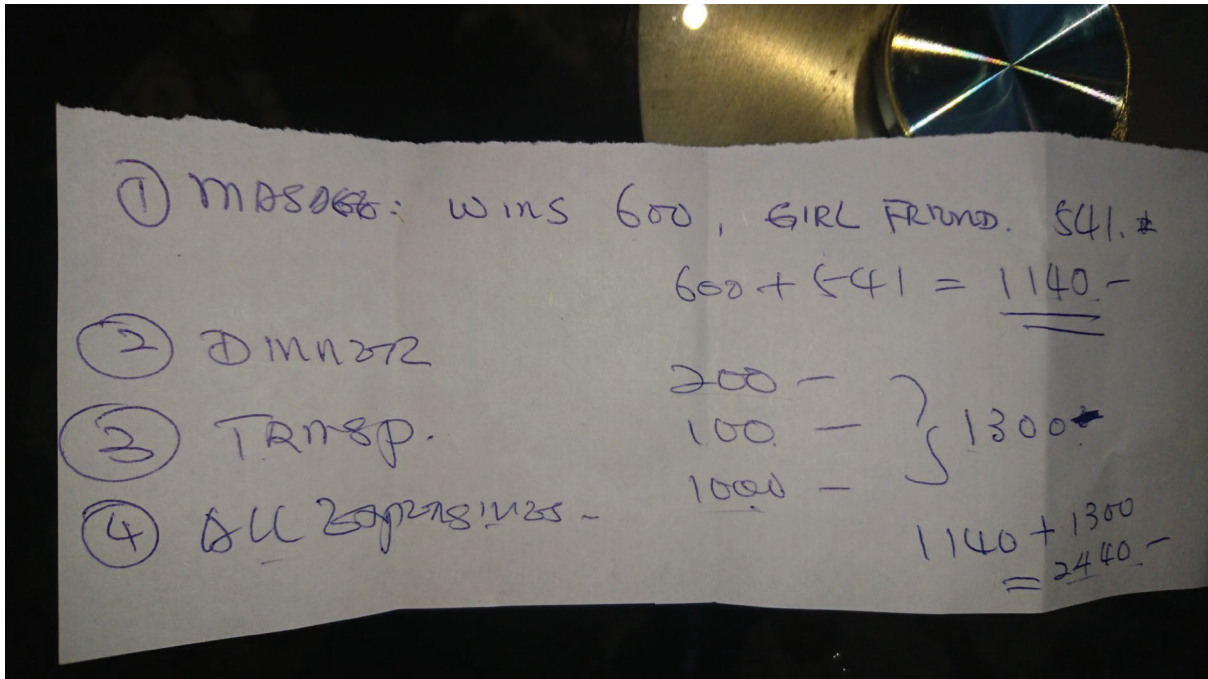 ① MASAGE: WINS 600, GIRL FRIEND. 541.
600 + 541 = 1140 -
② DINNER 200 -
③ TRNSP. 100 - } 1300
④ ALL 1000 -
1140 + 1300
= 2440 -